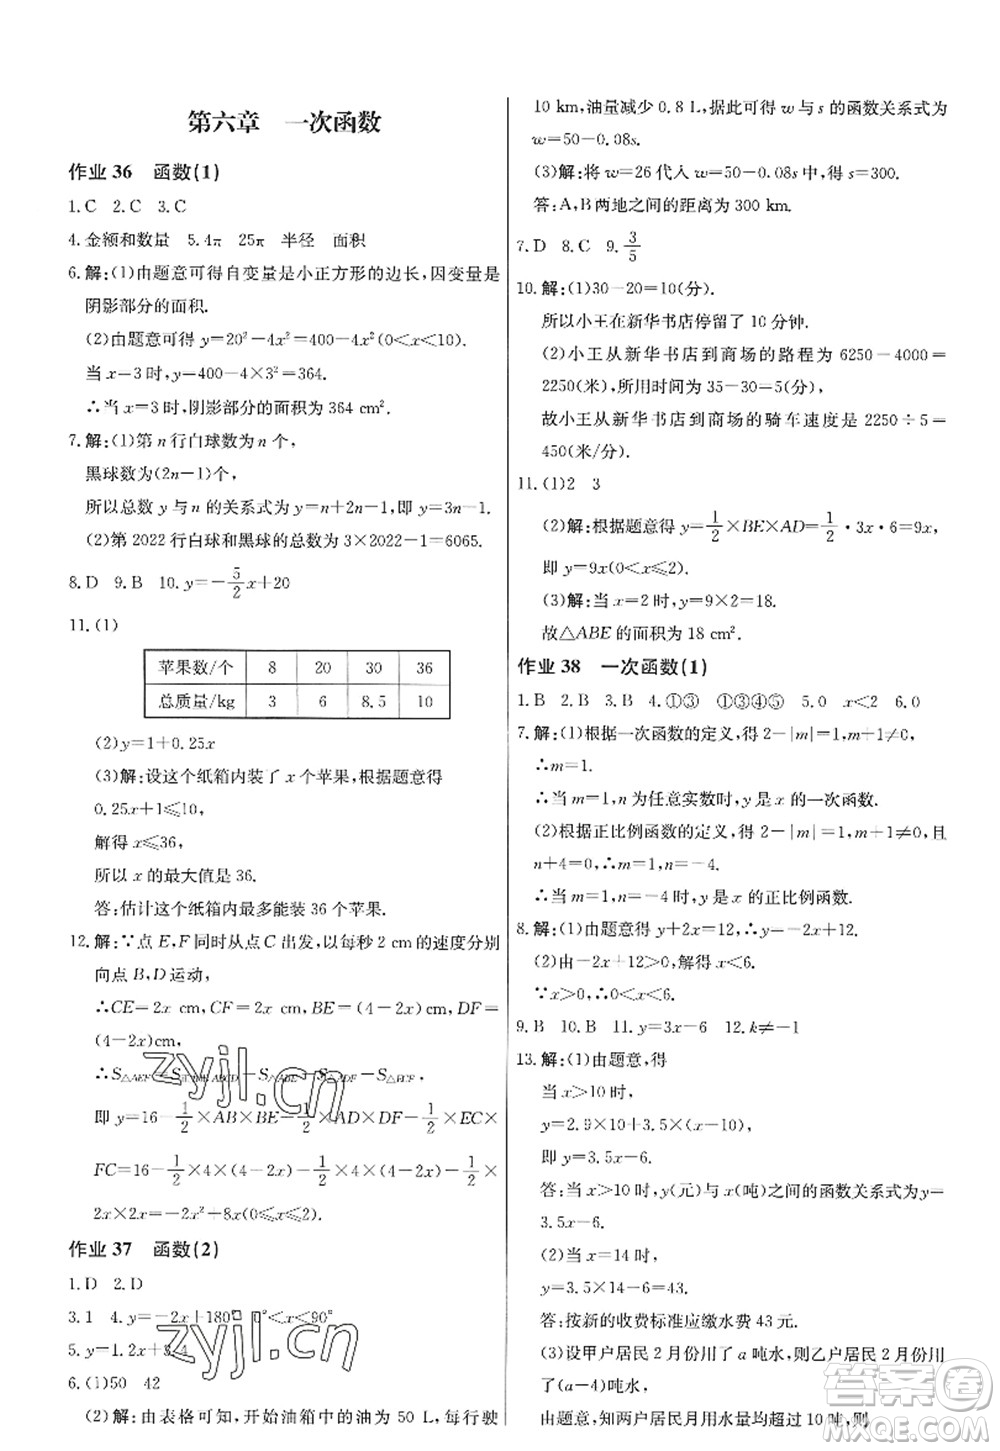 第六章　一次函数
作业 36　函数(1)
1.C　2.C　3.C
4.金额和数量　5.4π　25π　半径　面积
6.解:(1)由题意可得自变量是小正方形的边长,因变量是
阴影部分的面积.
(2)由题意可得 y=20²-4x²=400-4x²(0<x<10).
当 x=3 时,y=400-4×3²=364.
∴当 x=3 时,阴影部分的面积为 364 cm².
7.解:(1)第 n 行白球数为 n 个,
黑球数为(2n-1)个,
所以总数 y 与 n 的关系式为 y=n+2n-1,即 y=3n-1.
(2)第 2022 行白球和黑球的总数为 3×2022-1=6065.
8.D　9.B　10.y=-5/2x+20
11.(1)
苹果数/个　8　20　30　36
总质量/kg　3　6　8.5　10
(2)y=1+0.25x
(3)解:设这个纸箱内装了 x 个苹果,根据题意得
0.25x+1≤10,
解得 x≤36.
所以 x 的最大值是 36.
答:估计这个纸箱内最多能装 36 个苹果.
12.解:∵点 E,F 同时从点 C 出发,以每秒 2 cm 的速度分别
向点 B,D 运动,
∴CE=2x cm,CF=2x cm,BE=(4-2x)cm,DF=
(4-2x)cm,
∴S△AEF=S -S△ABE-S△ADF-S△ECF,
即 y=16-1/2×AB×BE-1/2×AD×DF-1/2×EC×
FC=16-1/2×4×(4-2x)-1/2×4×(4-2x)-1/2×
2x×2x=-2x²+8x(0≤x≤2).
作业 37　函数(2)
1.D　2.D
3.1　4.y=-2x+180°　0°<x<90°
5.y=1.2x+3.4
6.(1)50　42
(2)解:由表格可知,开始油箱中的油为 50 L,每行驶
10 km,油量减少 0.8 L,据此可得 w 与 s 的函数关系式为
w=50-0.08s.
(3)解:将 w=26 代入 w=50-0.08s 中,得 s=300.
答:A,B 两地之间的距离为 300 km.
7.D　8.C　9.3/5
10.解:(1)30-20=10(分).
所以小王在新华书店停留了 10 分钟.
(2)小王从新华书店到商场的路程为 6250-4000=
2250(米),所用时间为 35-30=5(分),
故小王从新华书店到商场的骑车速度是 2250÷5=
450(米/分).
11.(1)2　3
(2)解:根据题意得 y=1/2×BE×AD=1/2·3x·6=9x,
即 y=9x(0<x≤2).
(3)解:当 x=2 时,y=9×2=18.
故△ABE 的面积为 18 cm².
作业 38　一次函数(1)
1.B　2.B　3.B　4.①③　①③④⑤　5.0　x<2　6.0
7.解:(1)根据一次函数的定义,得 2-|m|=1,m+1≠0,
∴m=1.
∴当 m=1,n 为任意实数时,y 是 x 的一次函数.
(2)根据正比例函数的定义,得 2-|m|=1,m+1≠0,且
n+4=0,∴m=1,n=-4.
∴当 m=1,n=-4 时,y 是 x 的正比例函数.
8.解:(1)由题意,得 y+2x=12,∴y=-2x+12.
(2)由-2x+12>0,解得 x<6.
∵x>0,∴0<x<6.
9.B　10.B　11.y=3x-6　12.k≠-1
13.解:(1)由题意,得
当 x>10 时,
y=2.9×10+3.5×(x-10),
即 y=3.5x-6.
答:当 x>10 时,y(元)与 x(吨)之间的函数关系式为 y=
3.5x-6.
(2)当 x=14 时,
y=3.5×14-6=43.
答:按新的收费标准应缴水费 43 元.
(3)设甲户居民 2 月份用了 a 吨水,则乙户居民 2 月份用
了(a-4)吨水,
由题意,知两户居民月用水量均超过 10 吨,则
zyjl.cn
zyjl.cn
答案圈